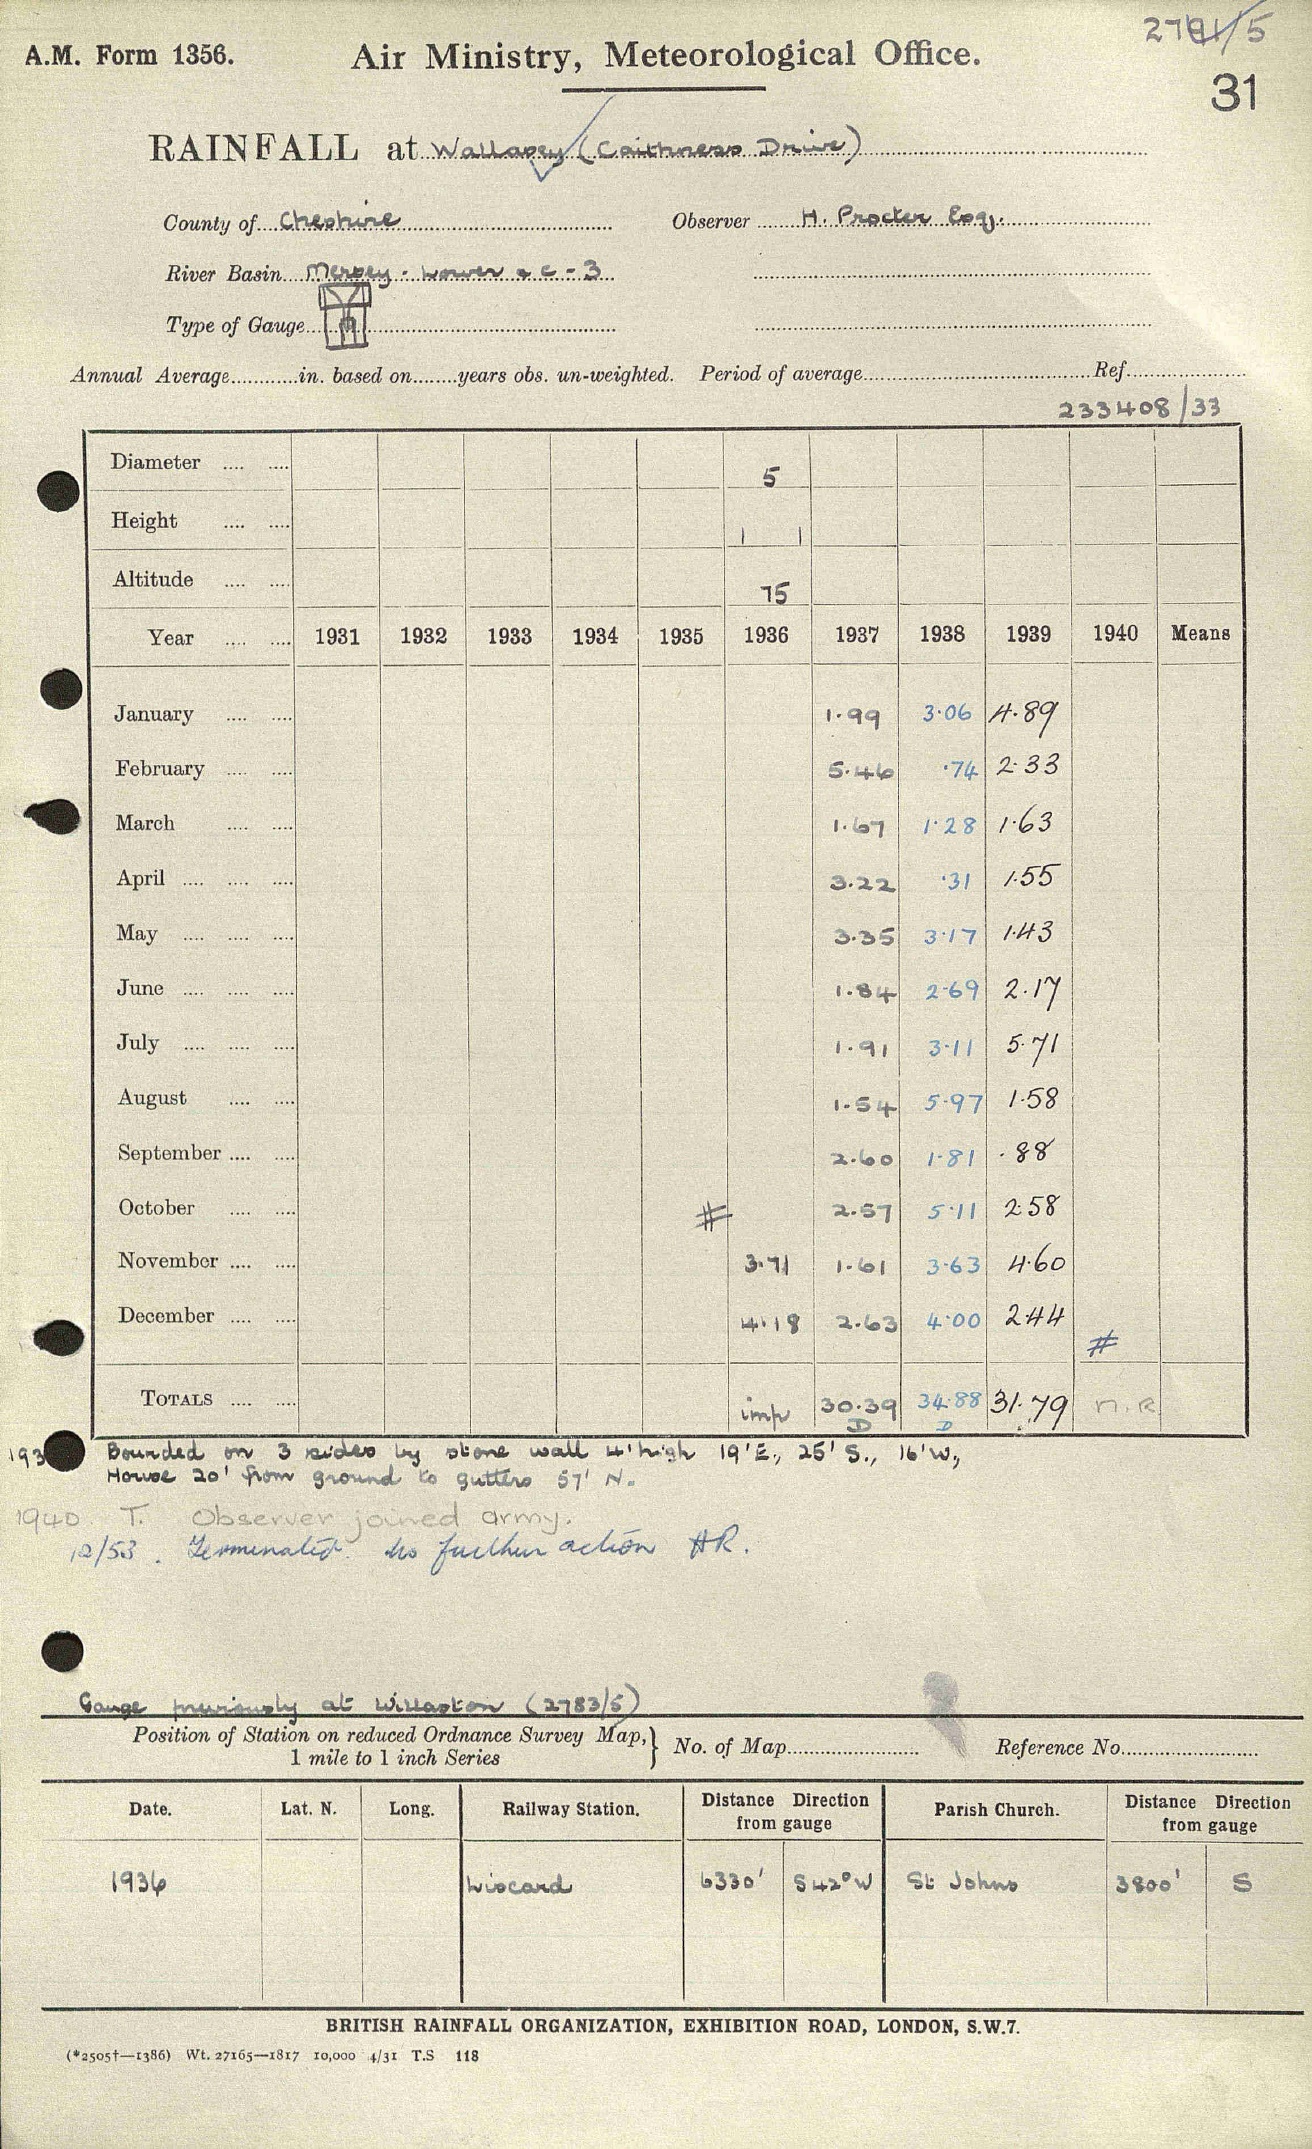 A.M. Form 1356. Air Ministry, Meteorological Office. 31
RAINFALL at Wallasey (Caithness Drive)
County of Cheshire Observer H. Procter Esq.
River Basin Mersey - Lower & c - 3
Type of Gauge
Annual Average in. based on years obs. un-weighted. Period of average Ref
233408/33
Diameter 5
Height 1 1
Altitude 75
Year 1931 1932 1933 1934 1935 1936 1937 1938 1939 1940 Means
January 1.99 3.06 4.89
February 5.46 .74 2.33
March 1.67 1.28 1.63
April 3.22 .31 1.55
May 3.35 3.17 1.43
June 1.84 2.69 2.17
July 1.91 3.11 5.71
August 1.54 5.97 1.58
September 2.60 1.81 .88
October # 2.57 5.11 2.58
November 3.71 1.61 3.63 4.60
December 4.18 2.63 4.00 2.44 #
TOTALS imp 30.39 34.88 31.79 n.R
D D
193 Bounded on 3 sides by stone wall 4' high 19'E., 25' S., 16'W.,
House 20' from ground to gutters 57' N.
1940. T. Observer joined army.
12/53. Terminated. No further action HR.
Gauge previously at Willaston (2783/5)
Position of Station on reduced Ordnance Survey Map,} No. of Map Reference No.
1 mile to 1 inch Series
Date. Lat. N. Long. Railway Station. Distance Direction from gauge Parish Church. Distance Direction from gauge
1936 Liscard 6330' S42°W St Johns 3800' S
BRITISH RAINFALL ORGANIZATION, EXHIBITION ROAD, LONDON, S.W.7.
(*2505†—1386) Wt. 27165—1817 10,000 4/31 T.S 118